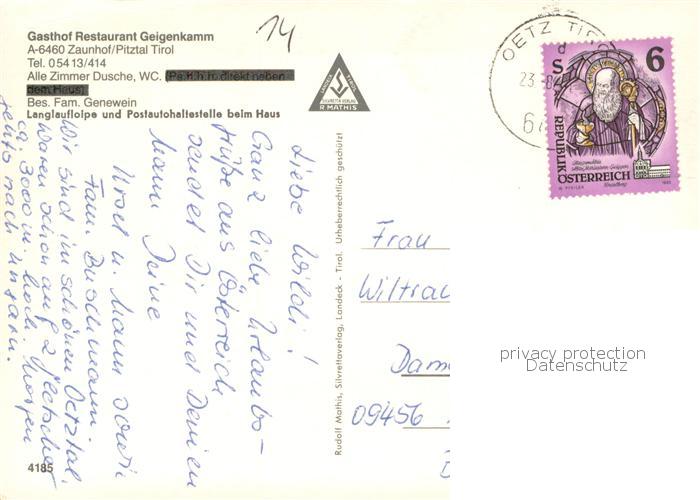 Gasthof Restaurant Geigenkamm
A-6460 Zaunhof/Pitztal Tirol
Tel. 05413/414
Alle Zimmer Dusche, WC.
dem Haus)
Bes. Fam. Genewein
Langlaufloipe und Postautohaltestelle beim Haus
14
R. MATHIS
Liebe Wildi!
Ganz liebe Urlaubs-
grüße aus Österreich
sendet Dir und Deinen
Mann Deine
Ursel u. Mann sowie
Fam. Buschmann.
Wir sind im schönen Oetztal.
Waren schon auf 2 Gletscher
ca. 3000 m hoch. Morgen
gehts nach Ungarn.
4185
Rudolf Mathis, Silvrettaverlag, Landeck - Tirol. Urheberrechtlich geschützt
OETZ TIROL
23.
6
S
REPUBLIK
ÖSTERREICH
Frau
Wiltrau
Dam
09456
privacy protection
Datenschutz